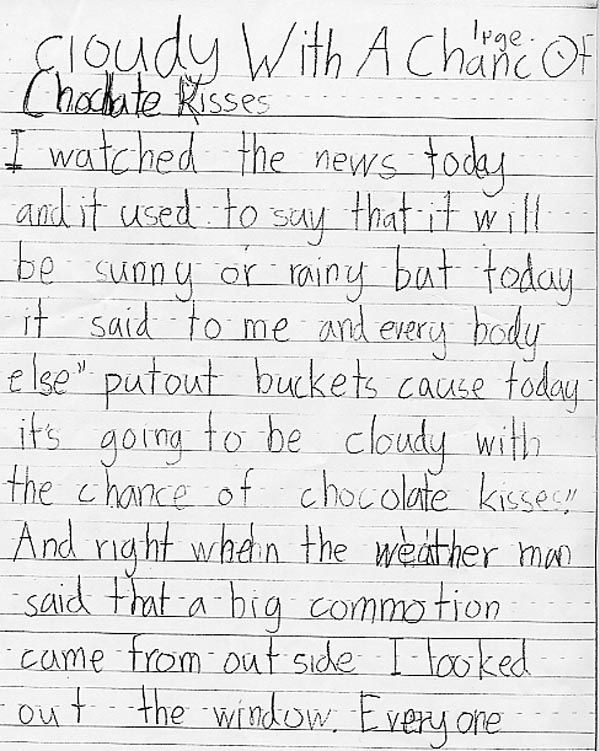 Cloudy With A Chanc Of
Choclate Kisses
I watched the news today
and it used to say that it will
be sunny or rainy but today
it said to me and every body
else" put out buckets cause today
it's going to be cloudy with
the chance of chocolate kisses!"
And right when the weather man
said that a big commotion
came from out side I looked
out the window. Everyone